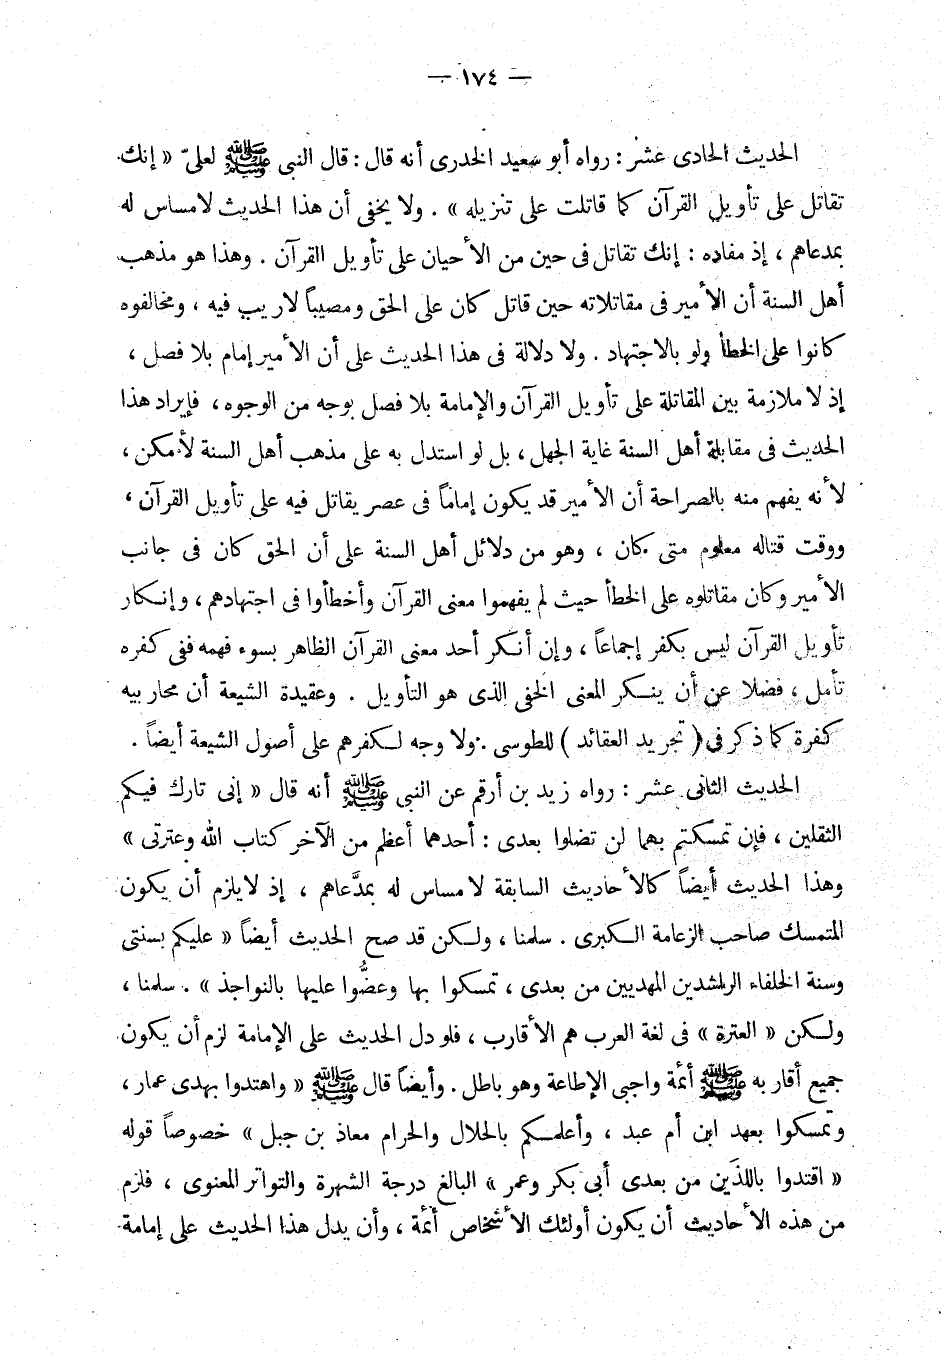 — ١٧٤ —
الحديث الحادى عشر : رواه أبو سعيد الخدرى أنه قال : قال النبى ﷺ لعلىّ « إنك
تقاتل على تأويل القرآن كما قاتلت على تنزيله » . ولا يخفى أن هذا الحديث لامساس له
بمدعاهم ، إذ مفاده : إنك تقاتل فى حين من الأحيان على تأويل القرآن . وهذا هو مذهب
أهل السنة أن الأمير فى مقاتلاته حين قاتل كان على الحق ومصيباً لاريب فيه ، ومخالفوه
كانوا على الخطأ ولو بالاجتهاد . ولا دلالة فى هذا الحديث على أن الأمير إمام بلا فصل ،
إذ لا ملازمة بين المقاتلة على تأويل القرآن والإمامة بلا فصل بوجه من الوجوه ، فإيراد هذا
الحديث فى مقابلة أهل السنة غاية الجهل ، بل لو استدل به على مذهب أهل السنة لأمكن ،
لأنه يفهم منه بالصراحة أن الأمير قد يكون إماماً فى عصر يقاتل فيه على تأويل القرآن ،
ووقت قتاله معلوم متى كان ، وهو من دلائل أهل السنة على أن الحق كان فى جانب
الأمير وكان مقاتلوه على الخطأ حيث لم يفهموا معنى القرآن وأخطأوا فى اجتهادهم ، وإنكار
تأويل القرآن ليس بكفر إجماعاً ، وإن أنكر أحد معنى القرآن الظاهر بسوء فهمه ففى كفره
تأمل ، فضلا عن أن ينكر المعنى الخفى الذى هو التأويل . وعقيدة الشيعة أن محاربيه
كفرة كما ذكر فى ( تجريد العقائد ) للطوسى . ولا وجه لكفرهم على أصول الشيعة أيضاً .
الحديث الثانى عشر : رواه زيد بن أرقم عن النبى ﷺ أنه قال « إنى تارك فيكم
الثقلين ، فإن تمسكتم بهما لن تضلوا بعدى : أحدهما أعظم من الآخر كتاب الله وعترتى »
وهذا الحديث أيضاً كالأحاديث السابقة لا مساس له بمدَّعاهم ، إذ لايلزم أن يكون
المتمسك صاحب الزعامة الكبرى . سلمنا ، ولكن قد صح الحديث أيضاً « عليكم بسنتى
وسنة الخلفاء الراشدين المهديين من بعدى ، تمسكوا بها وعضُّوا عليها بالنواجذ » . سلمنا ،
ولكن « العترة » فى لغة العرب هم الأقارب ، فلو دل الحديث على الإمامة لزم أن يكون
جميع أقاربه ﷺ أئمة واجبى الإطاعة وهو باطل . وأيضاً قال ﷺ « واهتدوا بهدى عمار ،
وتمسكوا بعهد ابن أم عبد ، وأعلمكم بالحلال والحرام معاذ بن جبل » خصوصاً قوله
« اقتدوا باللذَين من بعدى أبى بكر وعمر » البالغ درجة الشهرة والتواتر المعنوى ، فلزم
من هذه الأحاديث أن يكون أولئك الأشخاص أئمة ، وأن يدل هذا الحديث على إمامة